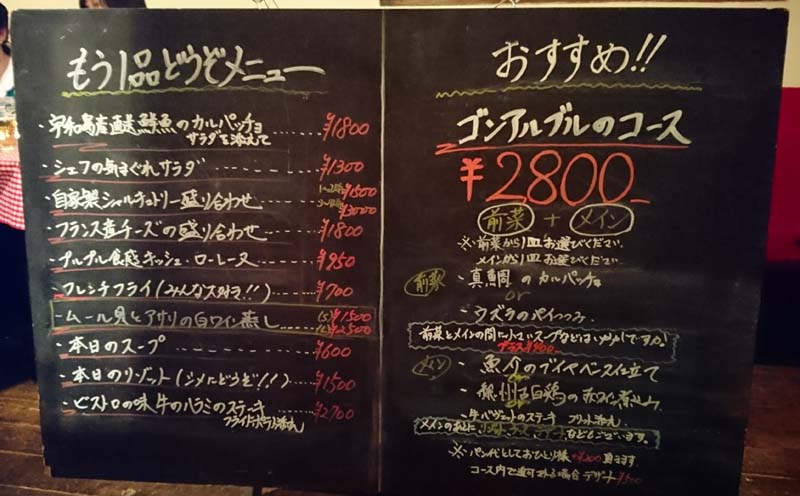 もう1品どうぞメニュー
・宇和島産直送鮮魚のカルパッチョ ¥1800
サラダを添えて
・シェフの気まぐれサラダ ¥1300
・自家製シャルキュトリー盛り合わせ ¥1500
¥3000
・フランス産チーズの盛り合わせ ¥1800
・プルプル食感キッシュ・ローレーヌ ¥950
・フレンチフライ(みんな大好き!!) ¥700
・ムール貝とアサリの白ワイン蒸し (S)¥1500
(L)¥2500
・本日のスープ ¥600
・本日のリゾット(シメにどうぞ!!) ¥1500
・ビストロの味 牛のハラミのステーキ ¥2700
フライドポテト添え
おすすめ!!
ゴンアルブルのコース
¥2800
前菜 + メイン
※前菜から1皿お選びください。
メインから1皿お選びください。
前菜
・真鯛のカルパッチョ
or
・ウズラのパイつつみ
前菜とメインの間に小さいスープなどはいかがですか?
プラス¥400
メイン
・魚介のブイヤベース仕立て
or
白鶏の赤ワイン煮込み
or
・牛バヴェットのステーキ フリット添え
メインのあとに などもございます。
※パン代としておひとり様+¥200頂きます
コース内で追可 場合 デザート¥500